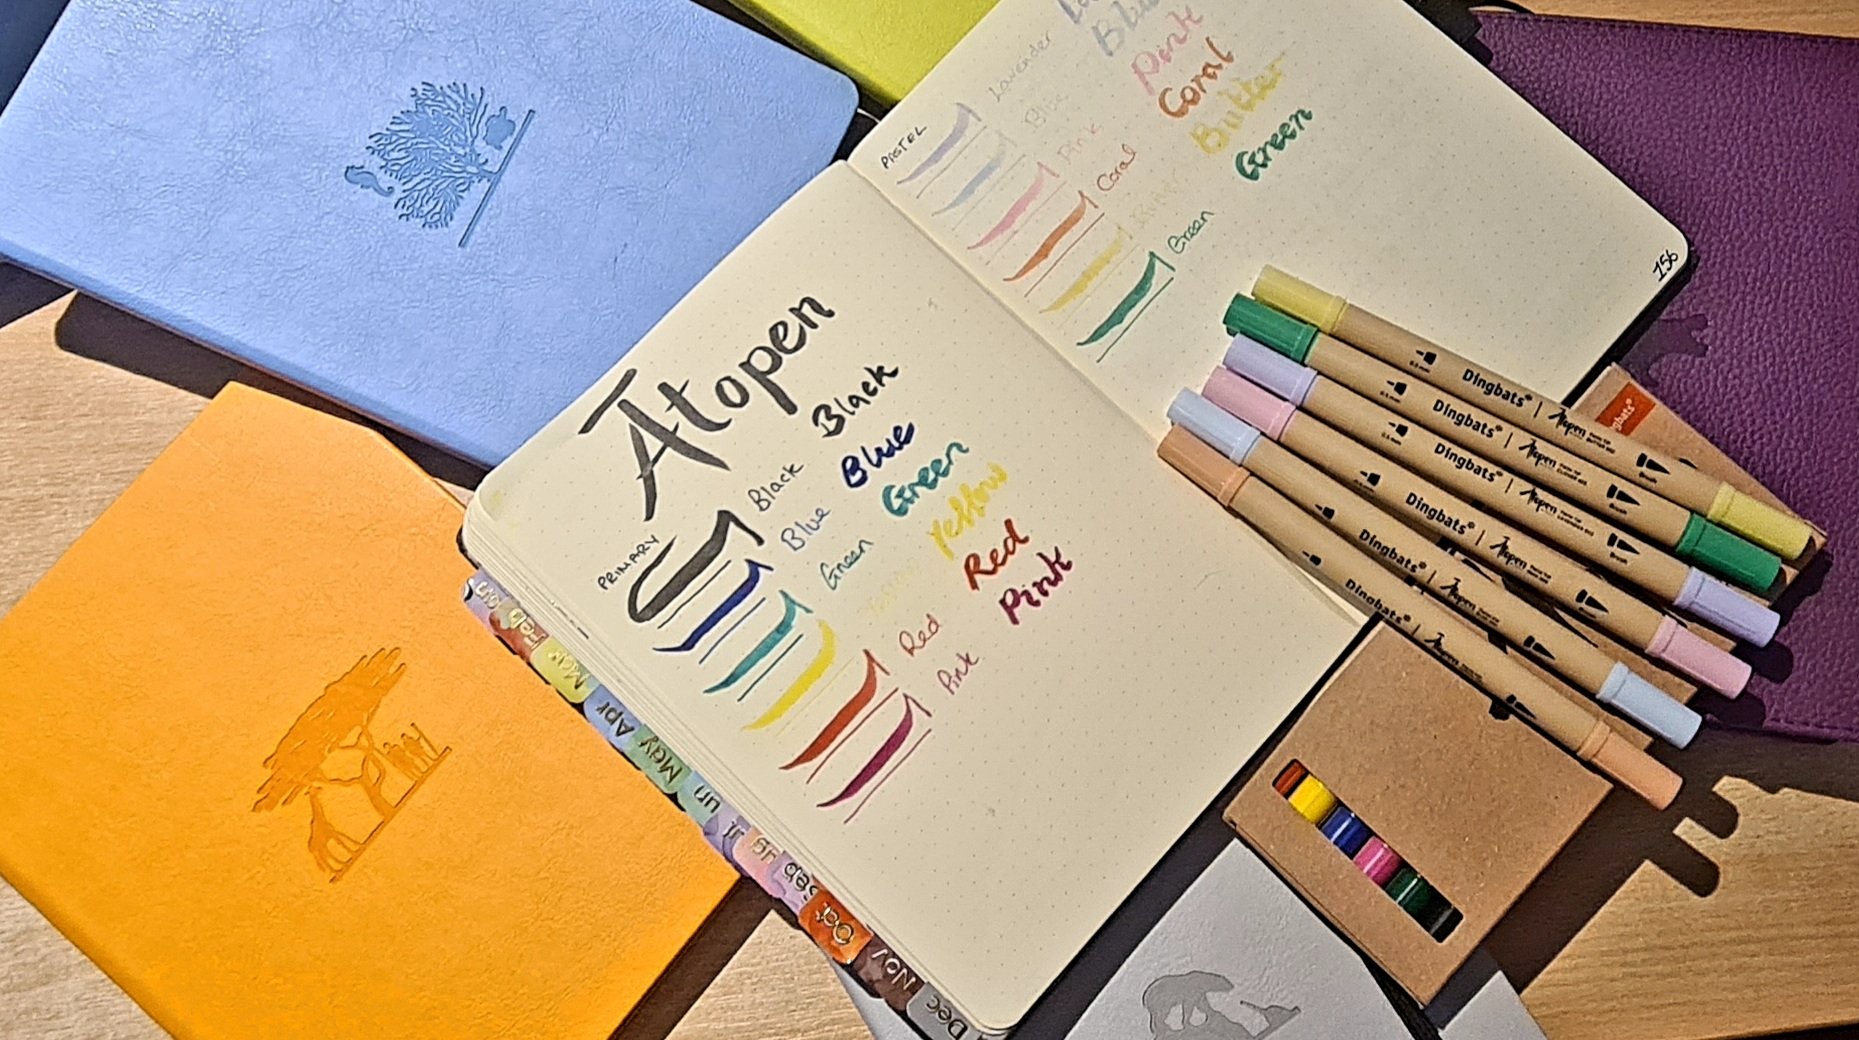 Atopen
PRIMARY
Black Black
Blue Blue
Green Green
Yellow Yellow
Red Red
Pink Pink
PASTEL
Lavender
Blue Blue
Pink Pink
Coral Coral
Butter Butter
Green Green
156
Feb
Mar
Apr
May
Jun
Jul
Sep
Oct
Nov
Dec
Dingbats* | Atopen
0.5 mm
Brush
Dingbats* | Atopen
0.5 mm
Brush
Dingbats* | Atopen
0.5 mm
Brush
Dingbats* | Atopen
Dingbats* | Atopen
Dingbats* | Atopen